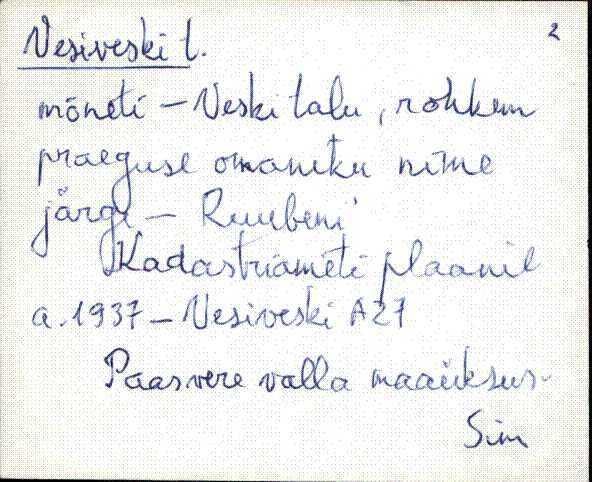 2
Vesiveski t.
mõneti – Veski talu, rohkem
praeguse omaniku nime
järgi – Ruubeni
Kadastriameti plaanil
a. 1937 – Vesiveski A27
Paasvere valla maaüksus-
Sim